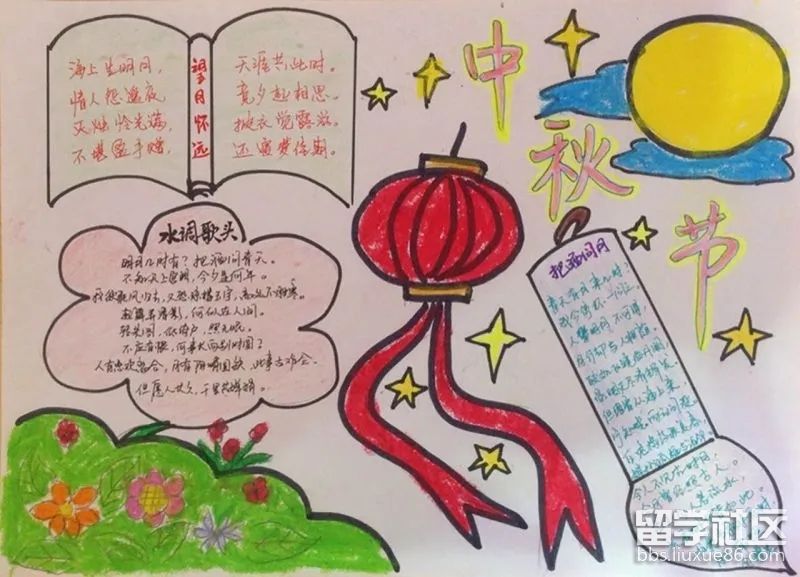 中秋节
海上生明月,
情人怨遥夜
灭烛怜光满,
不堪盈手赠,
望月怀远
天涯共此时。
竟夕起相思。
披衣觉露滋。
还寝梦佳期。
水调歌头
明月几时有?把酒问青天。
不知天上宫阙,今夕是何年。
我欲乘风归去,又恐琼楼玉宇,高处不胜寒。
起舞弄清影,何似在人间。
转朱阁,低绮户,照无眠。
不应有恨,何事长向别时圆?
人有悲欢离合,月有阴晴圆缺,此事古难全。
但愿人长久,千里共婵娟。
把酒问月
青天有月来几时?
我今停杯一问之。
人攀明月不可得,
月行却与人相随。
今人不见古时月,
今月曾经照古人。
留学社区
bbs.liuxue86.com